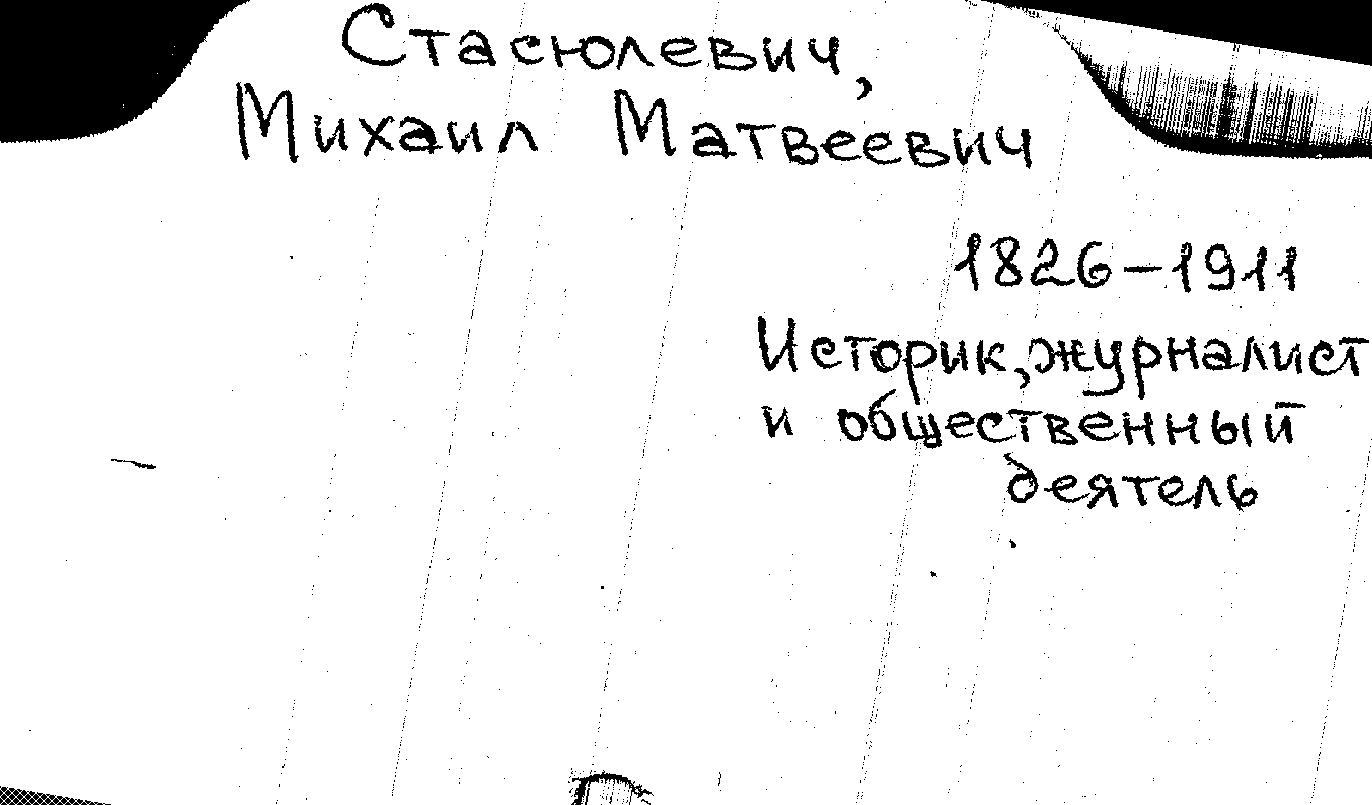 Стасюлевич,
Михаил Матвеевич
1826-1911
Историк, журналист
и общественный
деятель